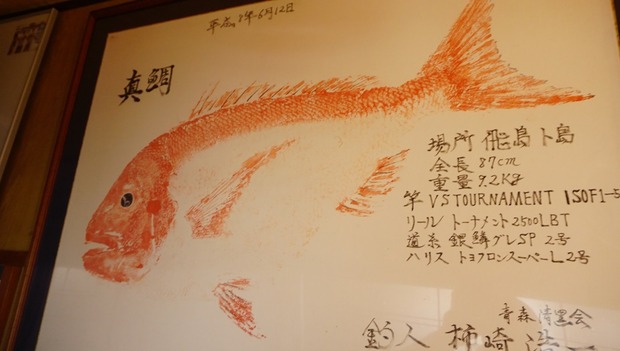 平成8年6月12日
真鯛
場所 飛島ト島
全長 87cm
重量 9.2Kg
竿 VS TOURNAMENT ISOF1-5
リール トーナメント2500LBT
道糸 銀鱗グレSP 2号
ハリス トヨフロンスーパーL 2号
青森 会
釣人 柿崎